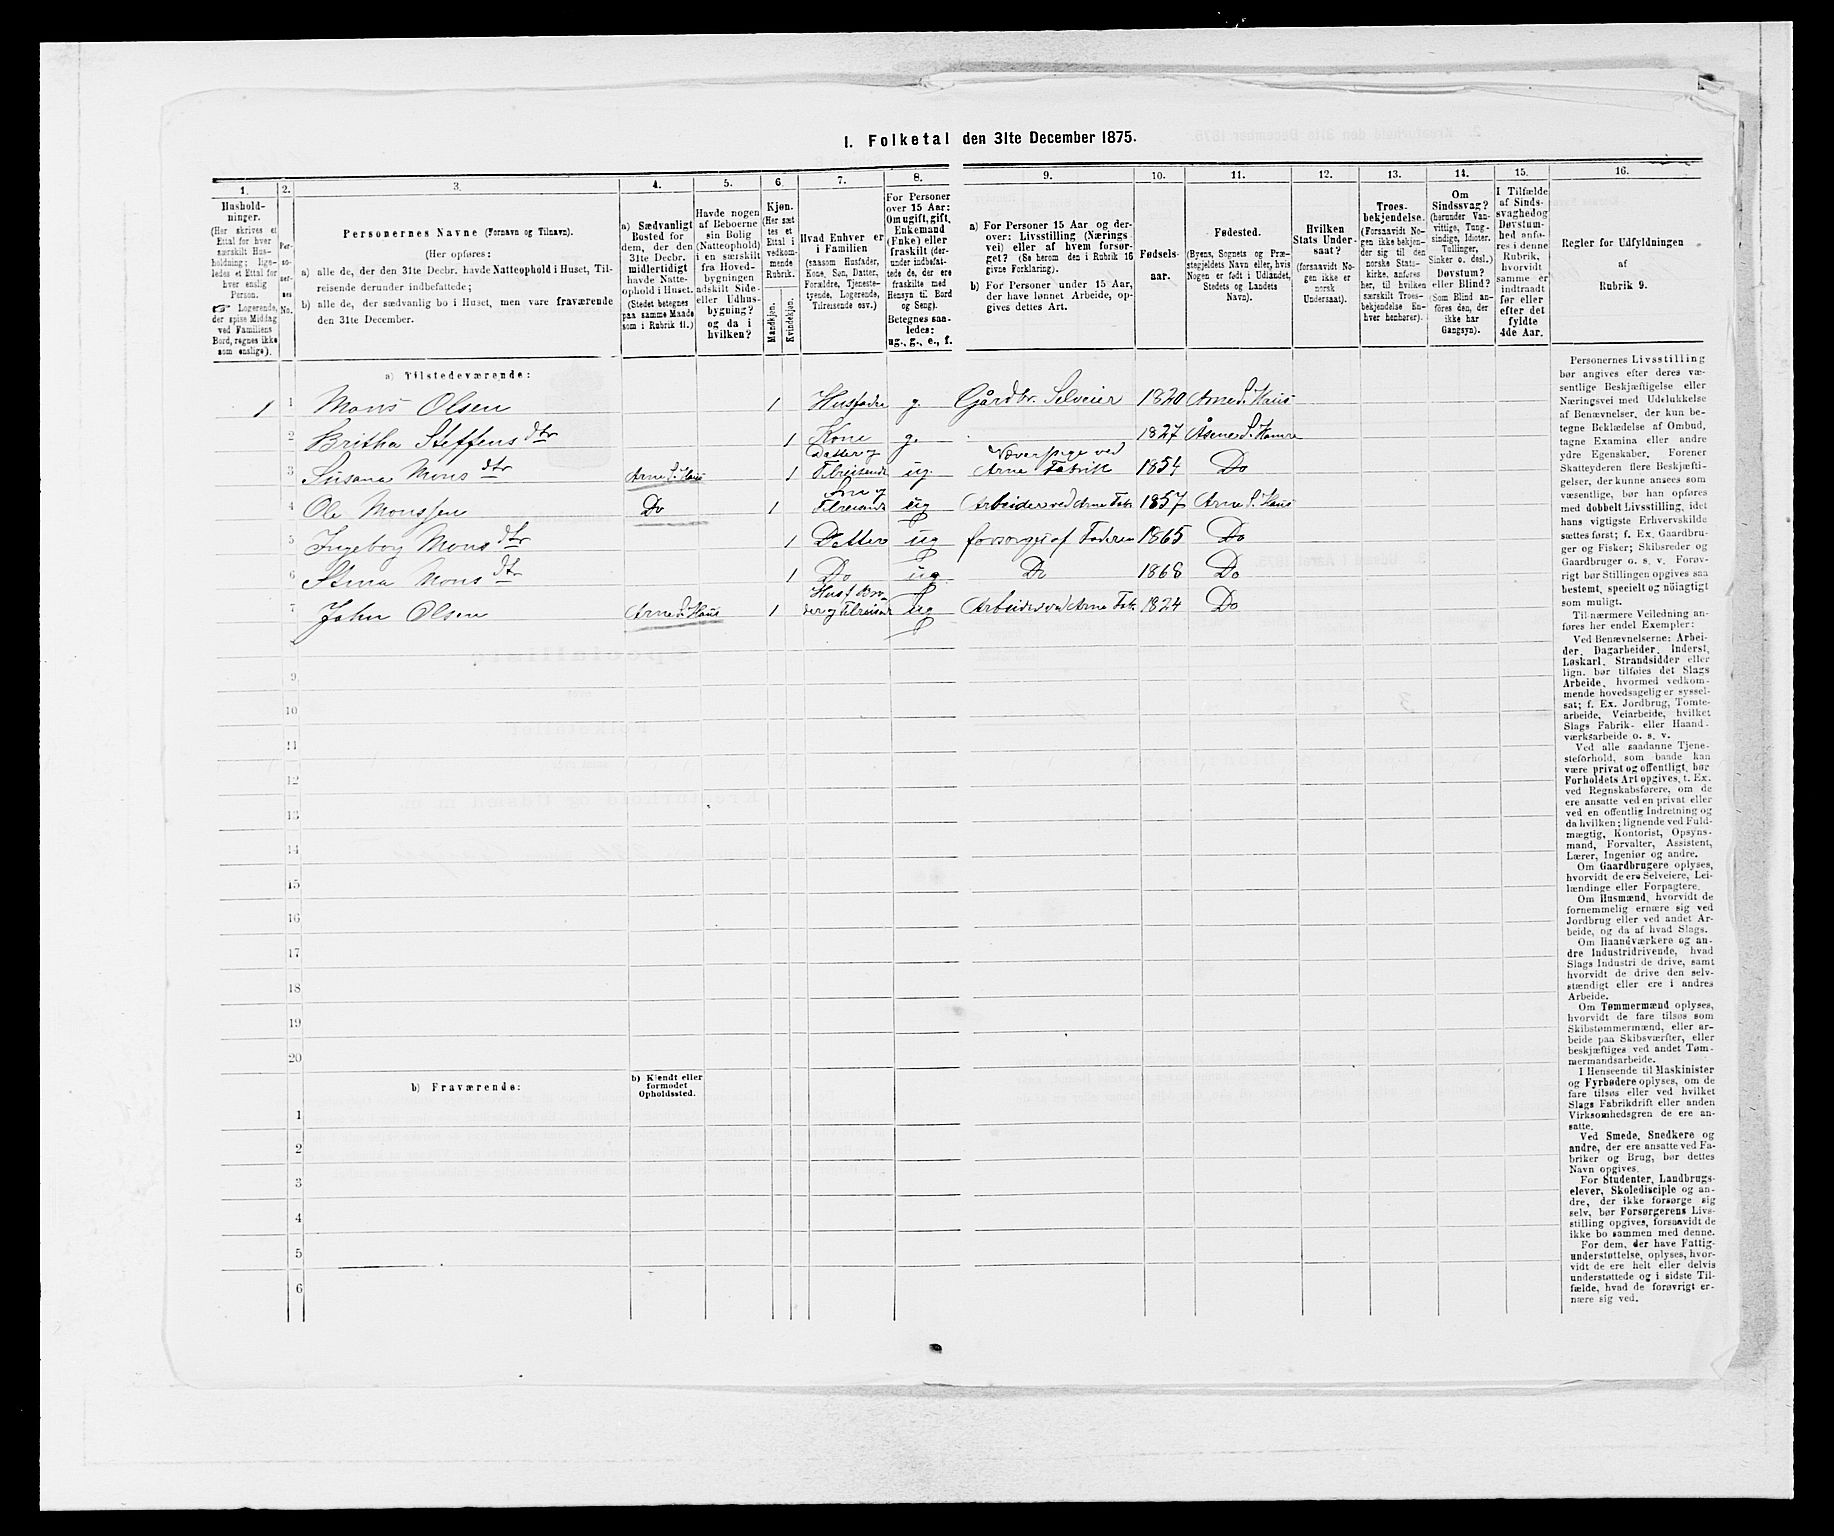 1. Folketal den 31te December 1875.
1. 2. 3. 4. 5. 6. 7. 8. 9. 10. 11. 12. 13. 14. 15. 16.
Hushold-
ninger.
(Her skrives et
Ettal for hver
særskilt Hus-
holdning; lige-
ledes et Ettal for
hver enslig
Person.
☞ Logerende,
der spise Middag
ved Familiens
Bord, regnes ikke
som enslige).
Per-
so-
ner-
nes
No.
Personernes Navne (Fornavn og Tilnavn).
(Her opføres:
a) alle de, der den 31te Decbr. havde Natteophold i Huset, Til-
reisende derunder indbefattede;
b) alle de, der sædvanlig bo i Huset, men vare fraværende
den 31te December.
a) Sædvanligt
Bosted for
dem, der den
31te Decbr.
midlertidigt
havde Natte-
ophold i Huset.
(Stedet betegnes
paa samme Maade
som i Rubrik 11.)
Havde nogen
af Beboerne
sin Bolig
(Natteophold)
i en særskilt
fra Hoved-
bygningen
adskilt Side-
eller Udhus-
bygning?
og da i
hvilken?
Kjøn.
(Her sæt-
tes et
Ettal i
vedkom-
mende
Rubrik.
Mandkjøn.
Kvindekjøn.
Hvad Enhver er
i Familien
(saasom Husfader,
Kone, Søn, Datter,
Forældre, Tjeneste-
tyende, Logerende,
Tilreisende osv.)
For Personer
over 15 Aar:
Om ugift, gift,
Enkemand
(Enke) eller
fraskilt (der-
under indbefat-
tede de, der ere
fraskilte med
Hensyn til Bord
og Seng).
Betegnes saa-
ledes:
ug., g., e., f.
a) For Personer 15 Aar og der-
over: Livsstilling (Nærings-
vei) eller af hvem forsør-
get? (Se herom den i Rubrik 16
givne Forklaring).
b) For Personer under 15 Aar,
der have lønnet Arbeide, op-
gives dettes Art.
Fødsels-
aar.
Fødested.
(Byens, Sognets og Præ-
stegjeldets Navn eller, hvis
Nogen er født i Udlandet,
Stedets og Landets
Navn).
Hvilken
Stats Under-
saat?
(forsaavidt No-
gen ikke er
norsk
Undersaat).
Troes-
bekjendelse.
(Forsaavidt No-
gen ikke bekjen-
der sig til den
norske Stats-
kirke, anføres
her, til hvilken
særskilt Troes-
bekjendelse En-
hver henhører).
Om
Sindssvag?
(herunder Van-
vittige, Tung-
sindige, Idioter,
Tullinger,
Sinker o. desl.)
Døvstum?
eller Blind?
(Som Blind an-
føres den, der
ikke har
Gangsyn).
I Tilfælde
af Sinds-
svaghed og
Døvstum-
hed anfø-
res i denne
Rubrik,
hvorvidt
samme er
indtraadt
før eller
efter det
fyldte
4de Aar.
Regler for Udfyldningen
af
Rubrik 9.
a) Tilstedeværende:
1 1 Mons Olsen 1 Husfader g. Gårdbr. Selveier 1820 Arne S. Haus
2 Britha Steffensdtr 1 Kone g. 1827 Åsene S. Hamre
3 Susana Monsdtr Arne S. Haus 1 Datter og Tilreisende ug Væverpige ved Arne Fabrik 1854 Do
4 Ole Monssen Do 1 Søn og Tilreisende ug Arbeider ved Arne Fabr. 1857 Arne S. Haus
5 Ingeborg Monsdtr 1 Datter ug forsørges af Faderen 1865 Do
6 Stina Monsdtr 1 Do ug Do 1868 Do
7 John Olsen Arne S. Haus 1 ug Arbeider ved Arne Fabr. 1824 Do
9
10
11
12
13
14
15
16
17
18
19
20
b) Fraværende:
b) Kjendt eller
formodet
Opholdssted.
1
2
3
4
5
6
Personernes Livsstilling
bør angives efter deres væ-
sentlige Beskjæftigelse eller
Næringsvei med Udelukkelse
af Benævnelser, der kun be-
tegne Beklædelse af Ombud,
tagne Examina eller andre
ydre Egenskaber. Forener
Skatteyderen flere Beskjæfti-
gelser, der kunne ansees som
væsentlige, bør han opføres
med dobbelt Livsstilling, idet
hans vigtigste Erhvervskilde
sættes først; f. Ex. Gaardbru-
ger og Fisker; Skibsreder og
Gaardbruger o. s. v. Forøv-
rigt bør Stillingen opgives saa
bestemt, specielt og nøiagtigt
som muligt.
Til nærmere Veiledning an-
føres her endel Exempler:
Ved Benævnelserne: Arbei-
der, Dagarbeider, Inderst,
Løskarl, Strandsidder eller
lign. bør tilføies det Slags
Arbeide, hvormed vedkom-
mende hovedsagelig er syssel-
sat; f. Ex. Jordbrug, Tomte-
arbeide, Veiarbeide, hvilket
Slags Fabrik- eller Haand-
værksarbeide o. s. v.
Ved alle saadanne Tjene-
steforhold, som baade kan
være privat og offentligt, bør
Forholdets Art opgives, t. Ex.
ved Regnskabsførere, om de
ere ansatte ved en privat eller
ved en offentlig Indretning og
da hvilken; lignende ved Fuld-
mægtig, Kontorist, Opsyns-
mand, Forvalter, Assistent,
Lærer, Ingeniør og andre.
Om Gaardbrugere oplyses,
hvorvidt de ere Selveiere, Lei-
lændinge eller Forpagtere.
Om Husmænd, hvorvidt de
fornemmelig ernære sig ved
Jordbrug eller ved andet Ar-
beide, og da af hvad Slags.
Om Haandværkere og an-
dre Industridrivende, hvad
Slags Industri de drive, samt
hvorvidt de drive den selv-
stændigt eller ere i andres
Arbeide.
Om Tømmermænd oplyses,
hvorvidt de fare tilsøs som
Skibstømmermænd, eller ar-
beide paa Skibsværfter, eller
beskjæftiges ved andet Tøm-
mermandsarbeide.
I Henseende til Maskinister
og Fyrbødere oplyses, om de
fare tilsøs eller ved hvilket
Slags Fabrikdrift eller anden
Virksomhedsgren de ere an-
satte.
Ved Smede, Snedkere og
andre, der ere ansatte ved Fa-
briker og Brug, bør dettes
Navn opgives.
For Studenter, Landbrugs-
elever, Skoledisciple og an-
dre, der ikke forsørge sig
selv, bør Forsørgerens Livs-
stilling opgives, forsaavidt de
ikke bo sammen med denne.
For dem, der have Fattig-
understøttelse, oplyses, hvor-
vidt de ere helt eller delvis
understøttede og i sidste Til-
fælde, hvad de forøvrigt er-
nære sig ved.